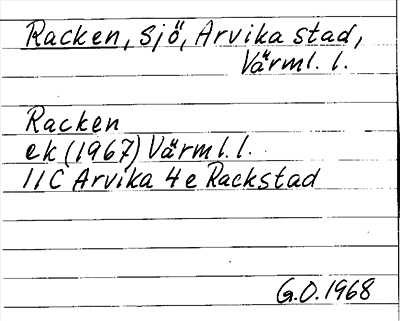 Racken, sjö, Arvika stad,
Värml. l.
Racken
ek (1967) Värml. l.
11C Arvika 4e Rackstad
G.O. 1968